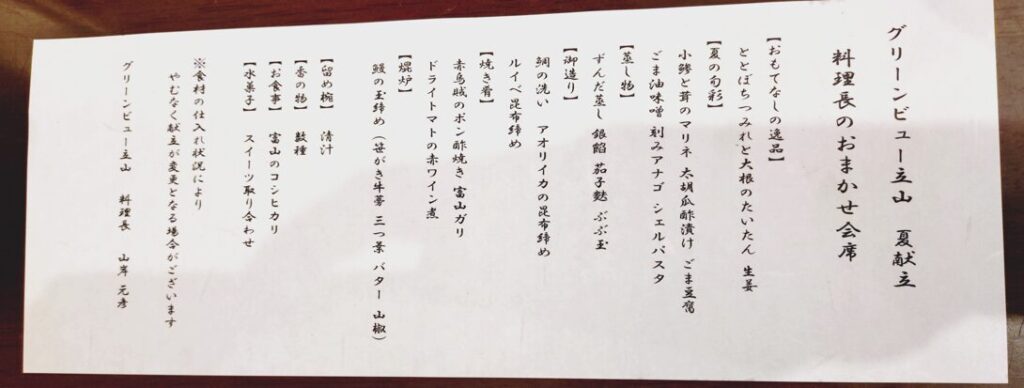 グリーンビュー立山　夏献立
料理長のおまかせ会席
【おもてなしの逸品】
ととぼちつみれと大根のたいたん 生姜
【夏の旬彩】
小鯵と茸のマリネ 太胡瓜酢漬け ごま豆腐
ごま油味噌 刻みアナゴ シェルパスタ
【蒸し物】
ずんだ蒸し 銀餡 茄子麩 ぶぶ玉
【御造り】
鯛の洗い　アオリイカの昆布締め
ルイベ昆布締め
【焼き肴】
赤烏賊のポン酢焼き 富山ガリ
ドライトマトの赤ワイン煮
【焜炉】
鰻の玉締め（笹がき牛蒡 三つ葉 バター 山椒）
【留め椀】　清汁
【香の物】　数種
【お食事】　富山のコシヒカリ
【水菓子】　スイーツ取り合わせ
※食材の仕入れ状況により
やむなく献立が変更となる場合がございます
グリーンビュー立山　料理長　山岸 元彦